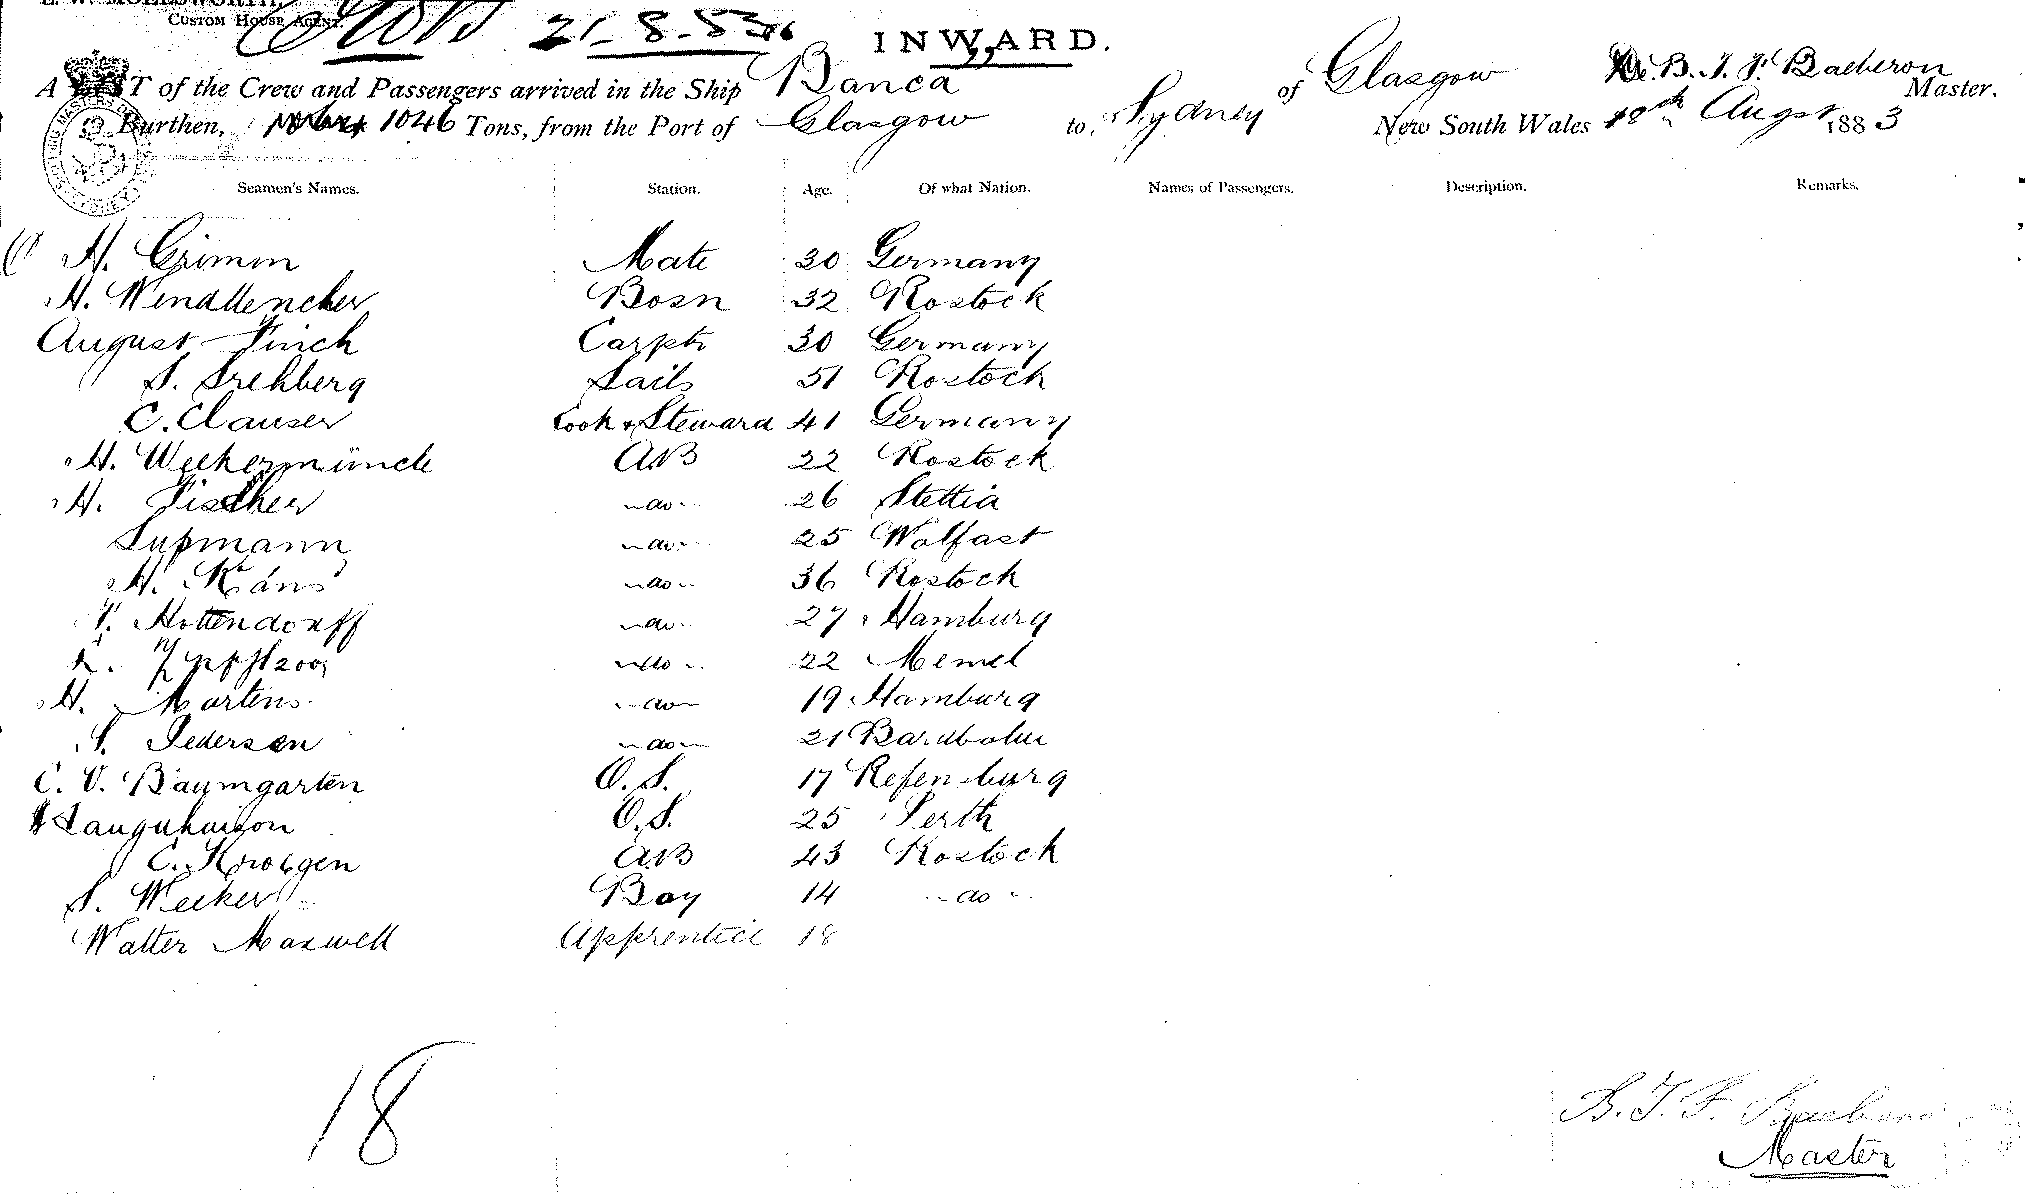 CUSTOM HOUSE AGENT.
21.8.83
INWARD.
A LIST of the Crew and Passengers arrived in the Ship Banca of Glasgow B. T. F. Master.
Burthen, 1046 Tons, from the Port of Glasgow to Sydney New South Wales 18th Augst 1883
Seamen's Names. Station. Age. Of what Nation. Names of Passengers. Description. Remarks.
H. Grimm Mate 30 Germany
H. Bosn 32 Rostock
August Finch Carptr 30 Germany
S. Srehberg Sails 51 Rostock
C. Clauser Cook & Steward 41 Germany
H. Weekermünck AB 22 Rostock
H. Fischer -do- 26 Stettia
-do- 25 Wolfast
H. -do- 36 Rostock
Hottendorff -do- 27 Hamburg
-do- 22 Memel
H. Martens -do- 19 Hamburg
Pedersen -do- 21
C. V. Baumgarten O.S. 17
O.S. 25 Perth
C. AB 43 Rostock
S. Weeker Boy 14 -do-
Walter Maxwell Apprentice 18
18
B. T. F.
Master